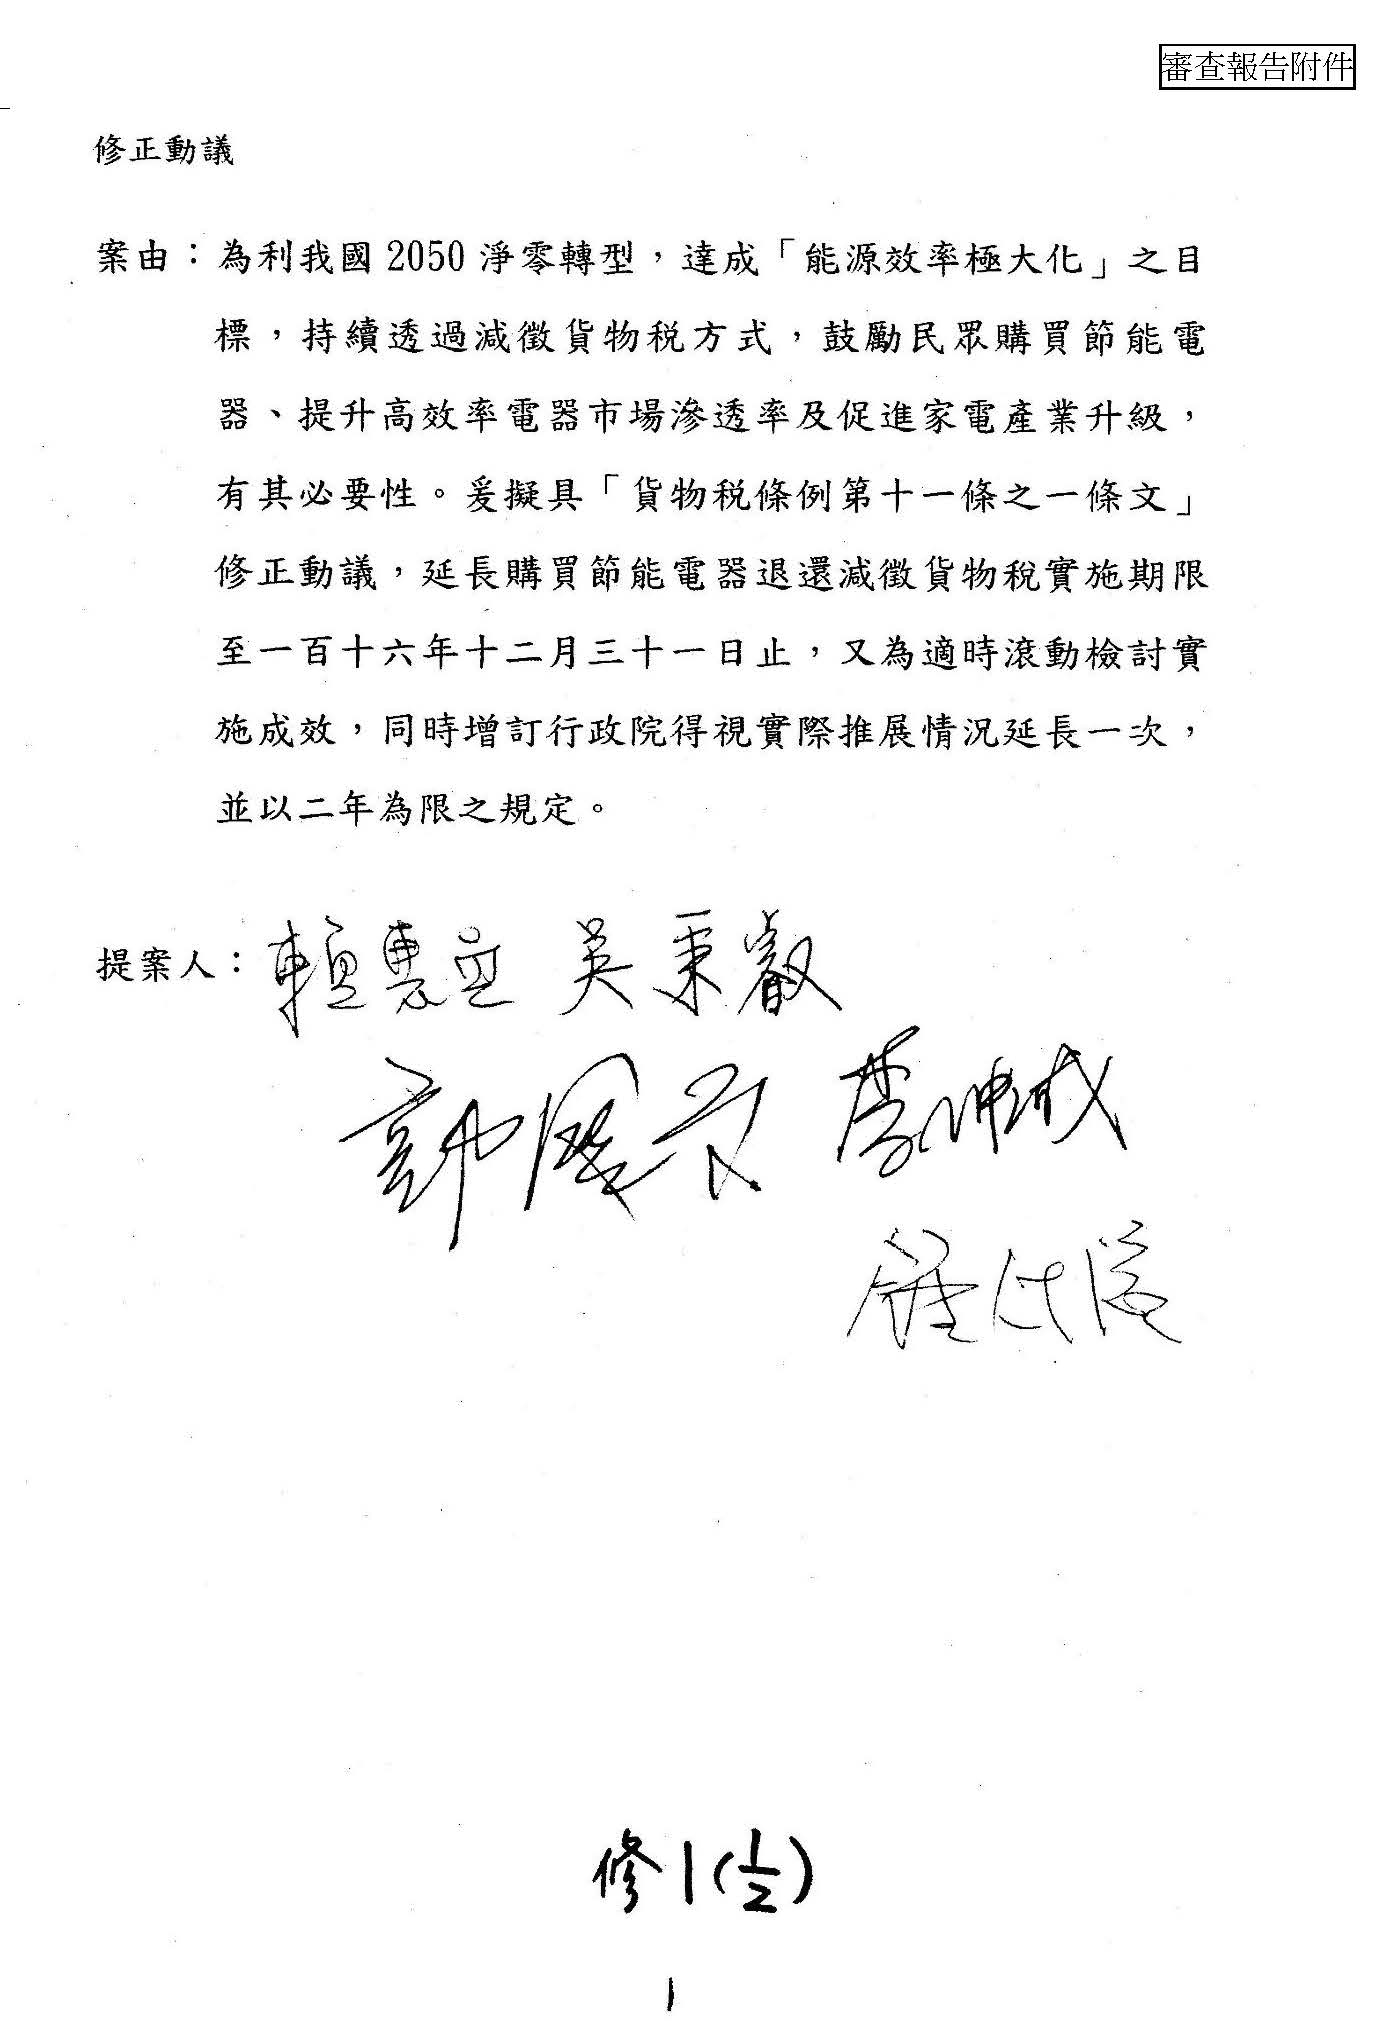 審查報告附件
修正動議
案由：為利我國2050淨零轉型，達成「能源效率極大化」之目
標，持續透過減徵貨物税方式，鼓勵民眾購買節能電
器、提升高效率電器市場滲透率及促進家電產業升級，
有其必要性。爰擬具「貨物税條例第十一條之一條文」
修正動議，延長購買節能電器退還減徵貨物稅實施期限
至一百十六年十二月三十一日止，又為適時滾動檢討實
施成效，同時增訂行政院得視實際推展情況延長一次，
並以二年為限之規定。
提案人：賴惠員 吳秉叡
郭國文 李坤城
鍾佳濱
修1(1/2)
1